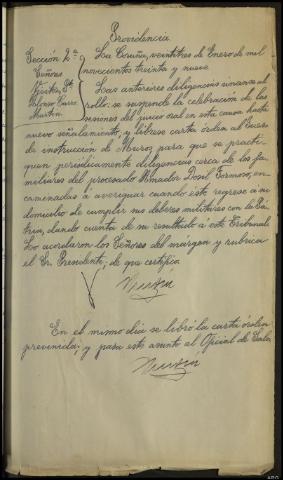 Providencia
Sección 2ª
Señores
La Coruña, veintitres de Enero de mil
novecientos treinta y nueve
Las anteriores diligencias unanse al
rollo: se suspende la celebración de las
sesiones del juicio oral en esta causa hasta
nuevo señalamiento, y librese carta órden al Juez
de instrucción de Muros para que se practi-
quen periódicamente diligencias cerca de los fa-
miliares del procesado Minador Dosil Formoso, en-
caminadas á averiguar cuando este regrese a su
domicilio de cumplir sus deberes militares con la Pá-
tria, dando cuenta de su resultado á este Tribunal.
Lo acordaron los Señores del márgen y rubrica
el Sr. Presidente, de que certifico
En el mismo día se libró la carta órden
prevenida; y pasa este asunto al Oficial de Sala